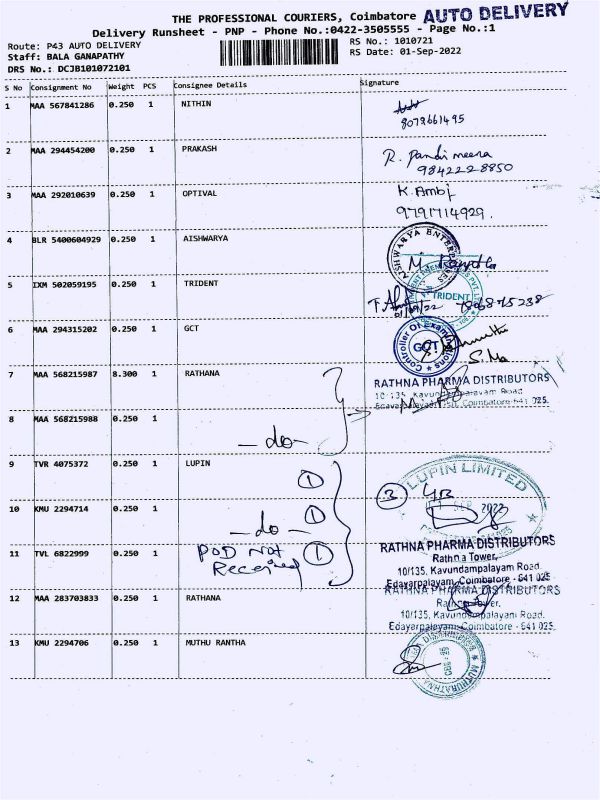 THE PROFESSIONAL COURIERS, Coimbatore AUTO DELIVERY
Delivery Runsheet - PNP - Phone No.:0422-3505555 - Page No.:1
Route: P43 AUTO DELIVERY RS No.: 1010721
Staff: BALA GANAPATHY RS Date: 01-Sep-2022
DRS No.: DCJB101072101
S No Consignment No Weight PCS Consignee Details Signature
1 MAA 567841286 0.250 1 NITHIN
8073661495
2 MAA 294454200 0.250 1 PRAKASH R. Pandi meena
9842228850
3 MAA 292010639 0.250 1 OPTIVAL K. Ambj
9791714929.
4 BLR 5400604929 0.250 1 AISHWARYA AISHWARYA ENTERPRISES
5 IXM 502059195 0.250 1 TRIDENT TRIDENT
01/09/22
6 MAA 294315202 0.250 1 GCT Controller Of Examinations GCT
7 MAA 568215987 8.300 1 RATHANA RATHNA PHARMA DISTRIBUTORS
10/135, Kavundampalayam Road
Edayarpalayam, Coimbatore-641 025.
8 MAA 568215988 0.250 1
- do -
9 TVR 4075372 0.250 1 LUPIN LUPIN LIMITED
1 3
10 KMU 2294714 0.250 1 1 SEP 2022
- do -
11 TVL 6822999 0.250 1 POD Not Received 1 RATHNA PHARMA DISTRIBUTORS
Rathna Tower,
10/135, Kavundampalayam Road.
Edayarpalayam, Coimbatore - 641 025
12 MAA 283703833 0.250 1 RATHANA RATHNA PHARMA DISTRIBUTORS
Rathna Tower,
10/135, Kavundampalayam Road.
Edayarpalayam, Coimbatore - 641 025.
13 KMU 2294706 0.250 1 MUTHU RANTHA